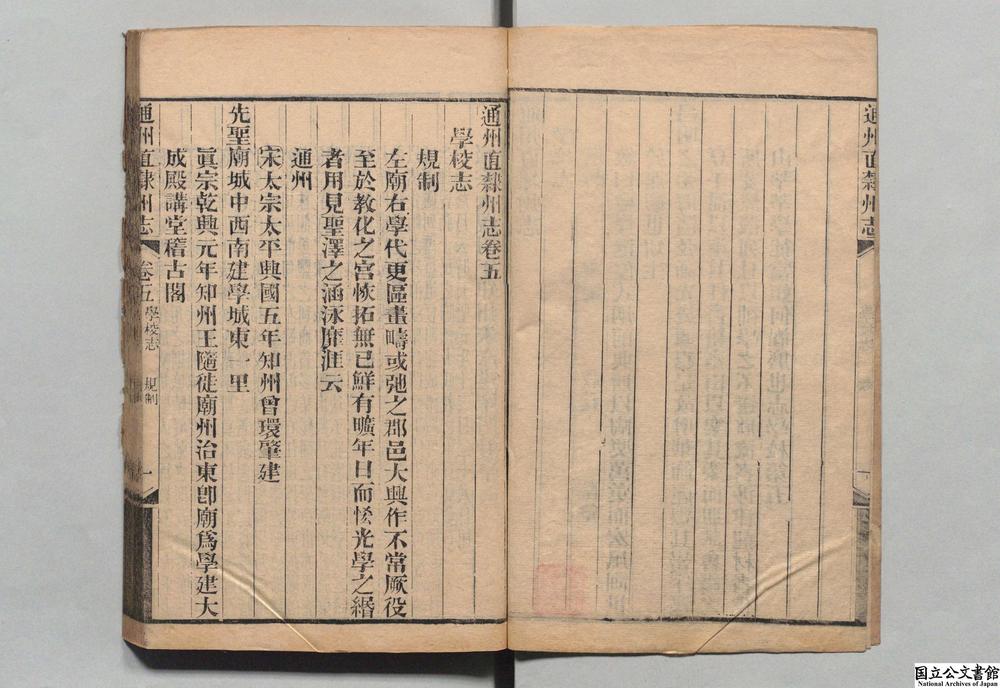 通州直隸州志
通州直隸州志卷五
學校志
規制
左廟右學代更區畫疇或弛之郡邑大興作不常厥役
至於教化之宮恢拓無已鮮有曠年日而恡光學之緡
者用見聖澤之涵泳靡涯云
通州
宋太宗太平興國五年知州曾環肇建
先聖廟城中西南建學城東一里
眞宗乾興元年知州王隨徙廟州治東卽廟爲學建大
成殿講堂稽古閣
通州直隸州志
卷五 學校志 規制 一
国立公文書館
National Archives of Japan